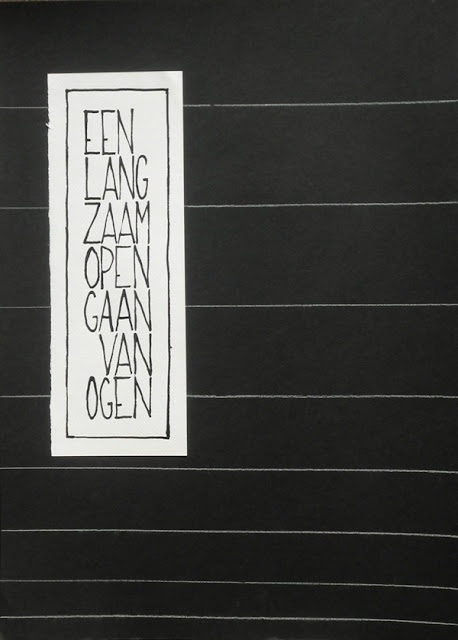 EEN
LANG
ZAAM
OPEN
GAAN
VAN
OGEN